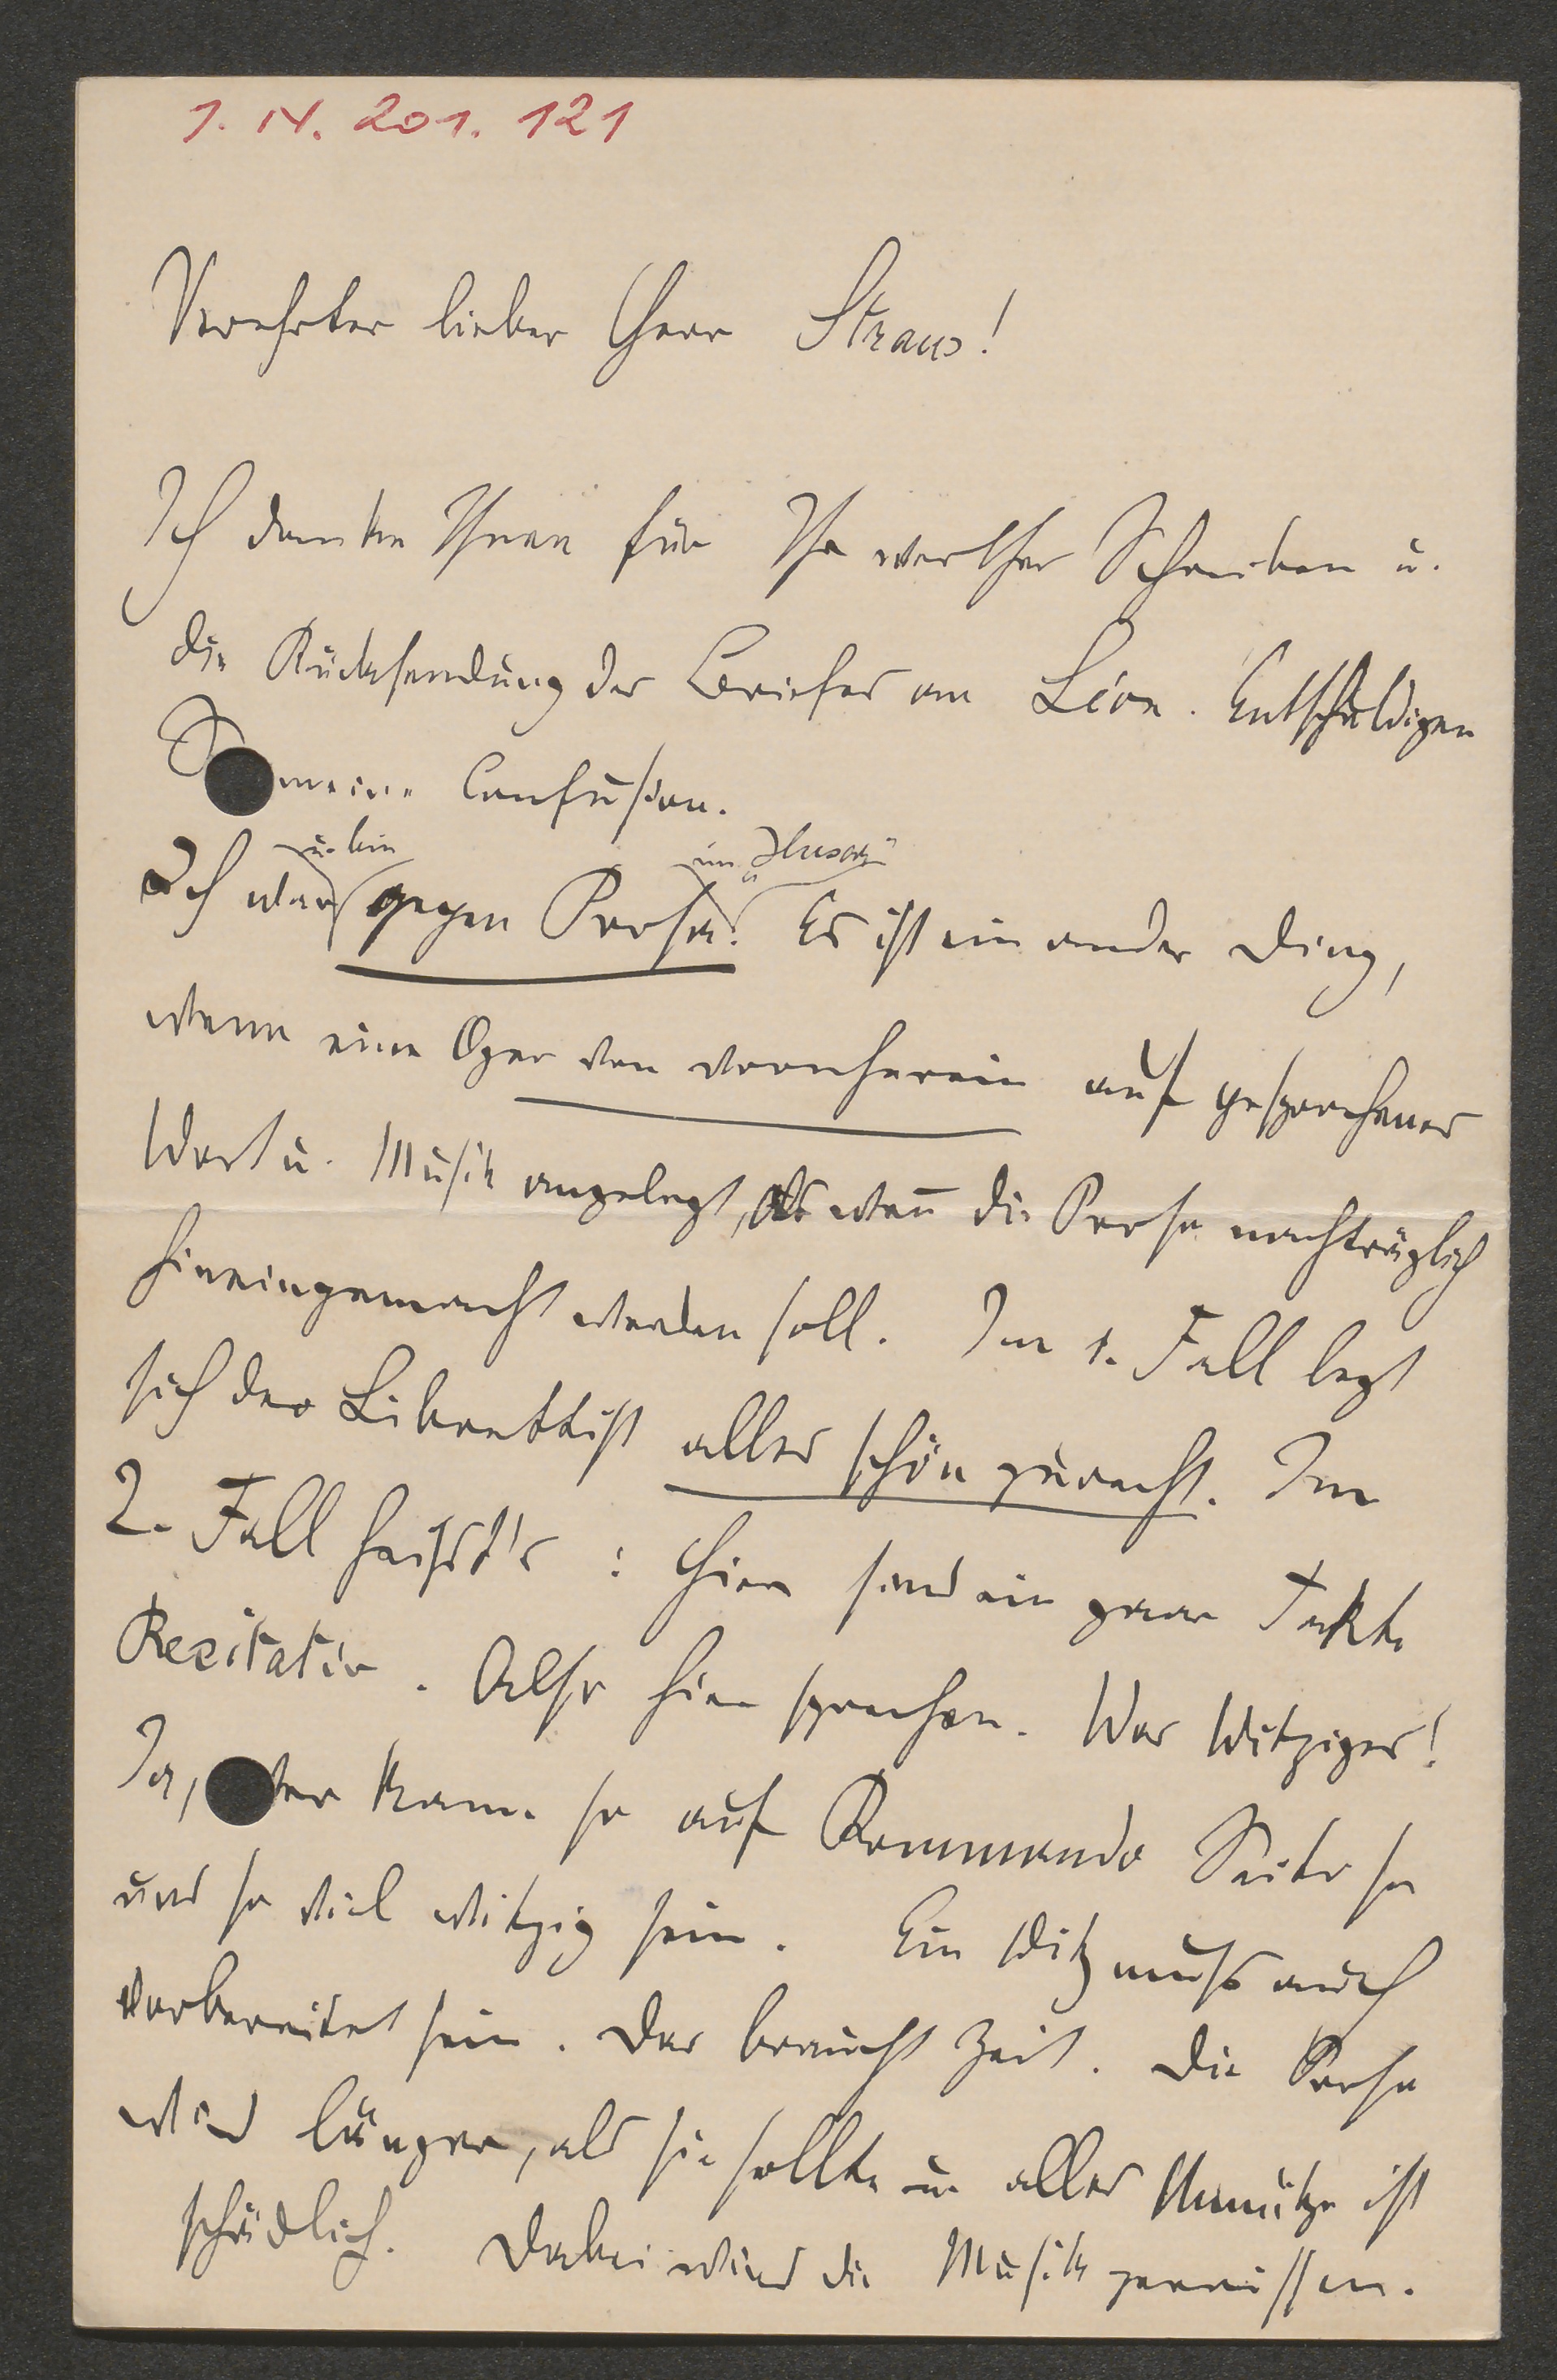 1. N. 201. 121
Verehrter lieber Herr Straus!
Ich danke Ihnen für Ihr werthes Schreiben u.
die Rücksendung des Briefes an Léon. Entschuldigen
meine Confusion.
u. bin im
Ich war gegen Prosa. Es ist ein ander Ding,
wenn eine Oper von vornherein auf gesprochenes
Wort u. Musik angelegt, als wenn̄ die Prosa nachträglich
hineingemacht werden soll. Im 1. Fall legt
sich der Librettist alles schön zurecht. Im
2. Fall heißt's : Hier sind ein paar Takte
Rezitativ. Also hier sprechen. Was Witziges!
Ja, wer kann so auf Kommando Seite so
und so viel witzig sein. Ein Witz muß auch
vorbereitet sein. Das braucht Zeit. Die Prosa
wird länger, als sie sollte u. alles Unnütze ist
schädlich. Dabei wird die Musik zerrissen.